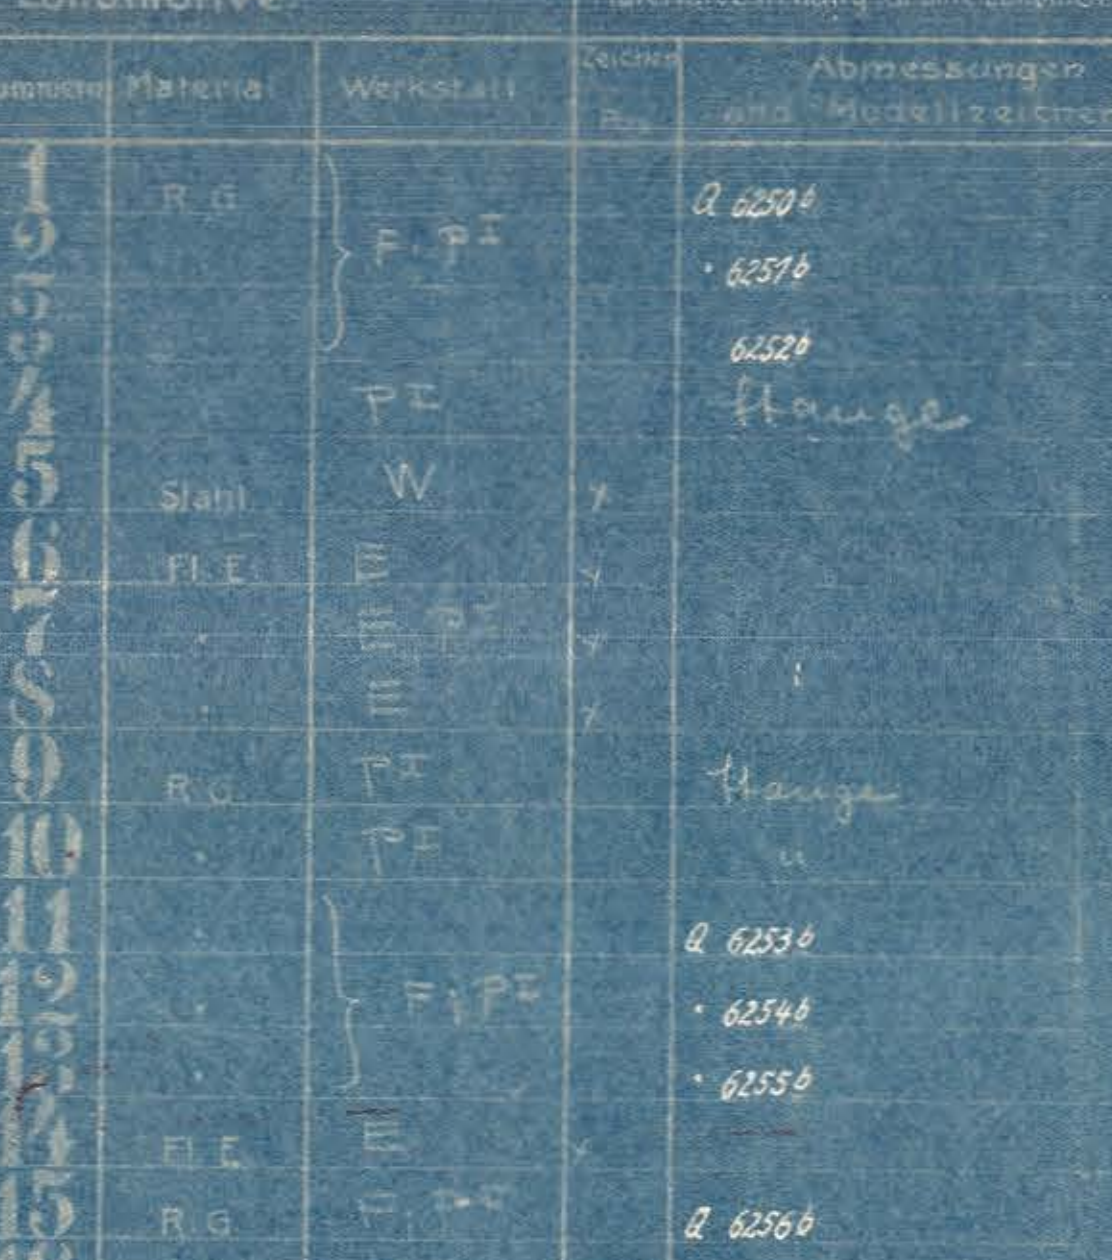 Material Werkstatt Zeichen Abmessungen
und Modellzeichen
1 R.G. F. PI Q 6250b
2 · 6251b
3 6252b
4 PI Stange
5 Stahl W x
6 Fl. E. E x
7 " E PI x
8 " E x
9 R.G. PI Stange
10 " PI "
11 " Q 6253b
12 " F; PI · 6254b
13 " · 6255b
14 Fl. E. E x
15 R.G. F. PI Q 6256b